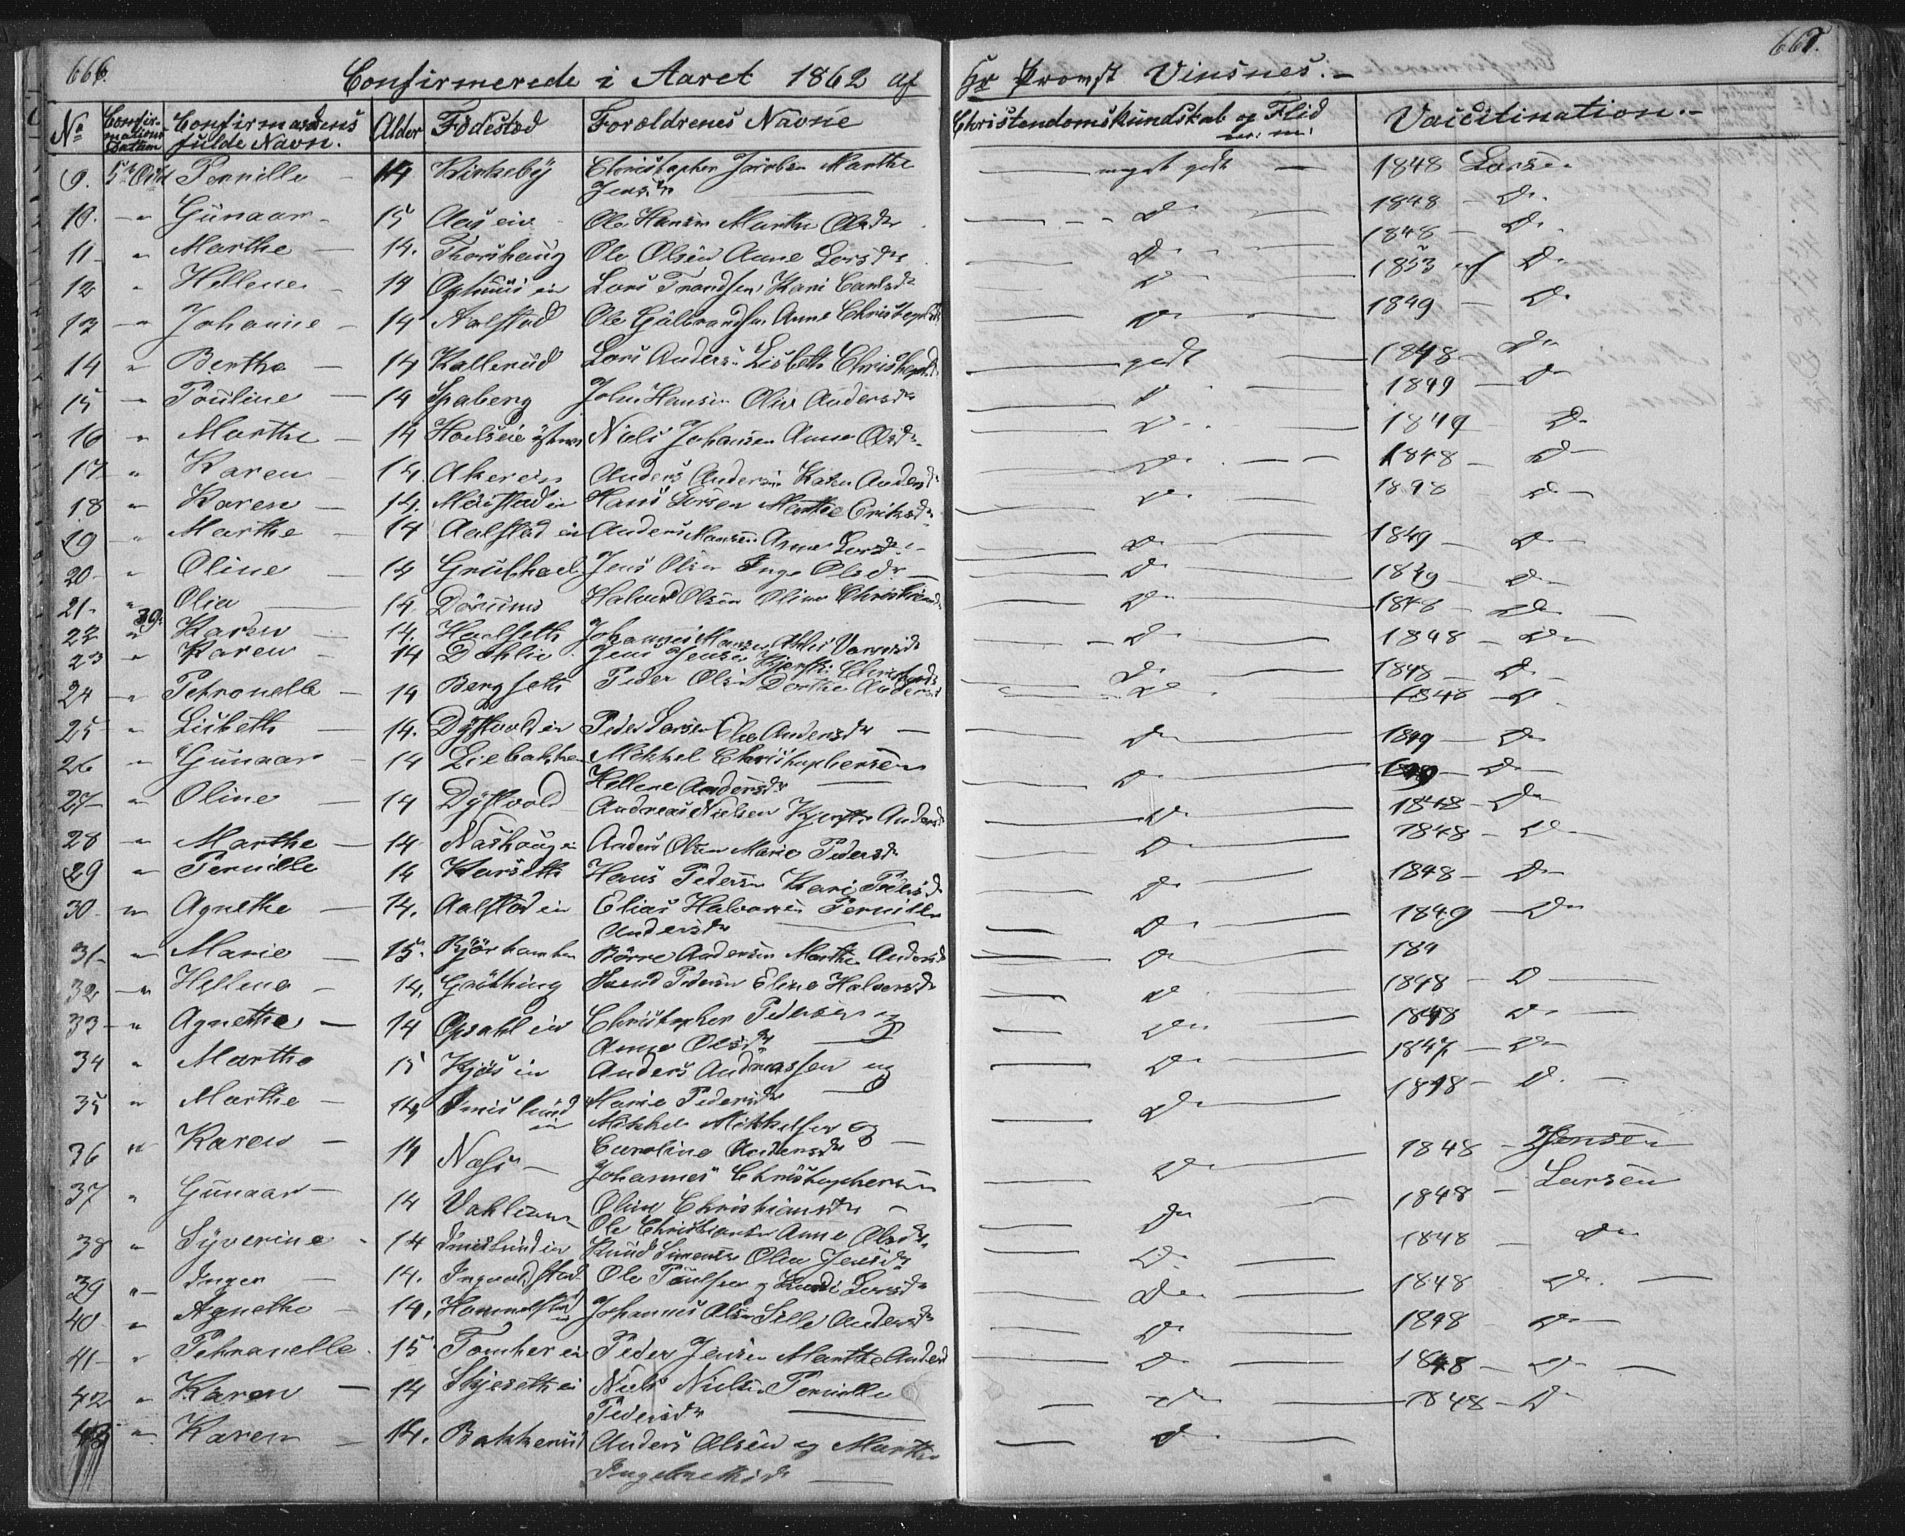 666. Confirmerede i Aaret 1862 af Hr Provst Vinsnes. 667.
No Confirmations Datum Confirmandens fulde Navn. Alder Födested Forældrenes Navne Christendomskundskab og Flid m: m: Vaccination.
9. 5te Oct Pernille 14 Kirkeby Christopher Marthe meget godt 1848 Larsen
Jensdr
10. " Gunaar 15 Ole Hansen Marthe Olsdr Do 1848 Do
11 " Marthe 14. Thorshaug Ole Olsen Anne Larsdr Do 1848 Do
12 " Hellene 14 Lars Trondsen Kari Do 1853 af Do
13 " Johanne 14 Aalstad Ole Gulbrandsen Anne Christophdr Do 1849 Do
14 " Berthe 14 Kallerud Lars Andersen Lisbeth Christophdr godt 1848 Do
15 " Pouline 14 Spaberg John Hansen Olia Andersdr Do 1849 Do
16 " Marthe 14 Niels Johansen Anne Olsdr Do 1849 Do
17 " Karen 14. Akerein Anders Andersen Karen Andersdr Do 1848 Do
18 " Karen 14. Hans Larsen Marthe Eriksdr Do 1848 Do
19 " Marthe 14 Aalstad ein Anders Hansen Anne Larsdr Do 1849 Do
20 " Oline 14 Jens Olsen Inge Olsdr Do 1849 Do
21. " Olia 14. Dörums Halvor Olsen Oline Christiansdr Do 1848 Do
22 " Karen 14. Haelseth Johannes Hansen Do 1848 Do
23 " Karen 14 Dahlie Jens Jensen Kjersti Christophdr Do 1848 Do
24 " Petronelle 14 Bergseth Peder Olsen Dorthe Andersdr Do 1848 Do
25 " Lisbeth 14. Dystvold ein Peder Larsen Olia Andersdr Do 1849 Do
26 " Gunaar 14 Liebakken Mikkel Christophersen Do Do
Hellene Andersdr
27 " Oline 14 Dystvold Andreas Nielsen Kjersti Andersdr Do 1848 Do
28 " Marthe 14 Nashoug ein Anders Olsen Marie Pedersdr Do 1848 Do
29 " Pernille 14 Karseth Hans Pedersen Kari Pedersdr Do 1848 Do
30 " Agnethe 14. Aalstad ein Elias Halvorsen Pernille Do 1849 Do
Andersdr
31 " Marie 15. Börre Andersen Marthe Andersdr Do 184
32 " Hellene 14. Svend Pedersen Eline Halvorsdr Do 1848 Do
33 " Agnethe 14 Opsahl ein Christopher Pedersen og Do 1848 Do
Anne Olsdr
34 " Marthe 15 Kjös ein Anders Andreassen og Do 1847 Do
Marie Pedersdr
35 " Marthe 14 Imislund ein Mikkel Mikkelsen og Do 1848 Do
Caroline Andersdr
36 " Karen 14 Næss Johannes Christophersen Do 1848 Jensen
Oline Christiansdr
37 " Gunaar 14 Ole Christiansen Anne Olsdr Do 1848 Larsen
38 " Syverine 14 Imislund ein Knud Simensen Olia Jensdr Do 1848 Do
39 " Inger 14. Ole Poulsen og Kari Larsdr Do 1848 Do
40 " Agnethe 14. Hammelstad ein Johannes Olsen Sille Andersdr Do 1848 Do
41 " Petronelle 15 Tomter ein Peder Jensen Marthe Andersdr Do 1848 Do
42 " Karen 14 Skjeseth ein Niels Nielsen Pernille Do 1848 Do
Pedersdr
43 " Karen 14. Bakkerud Anders Olsen og Marthe Do
Ingebrethsdr